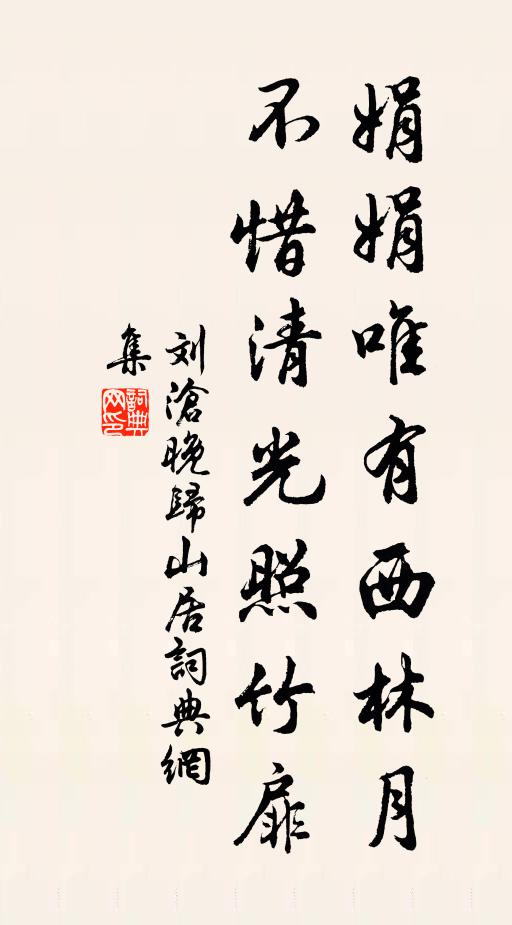 娟娟唯有西林月
不惜清光照竹扉
刘滄晚歸山居詞典網
集
詞典网印